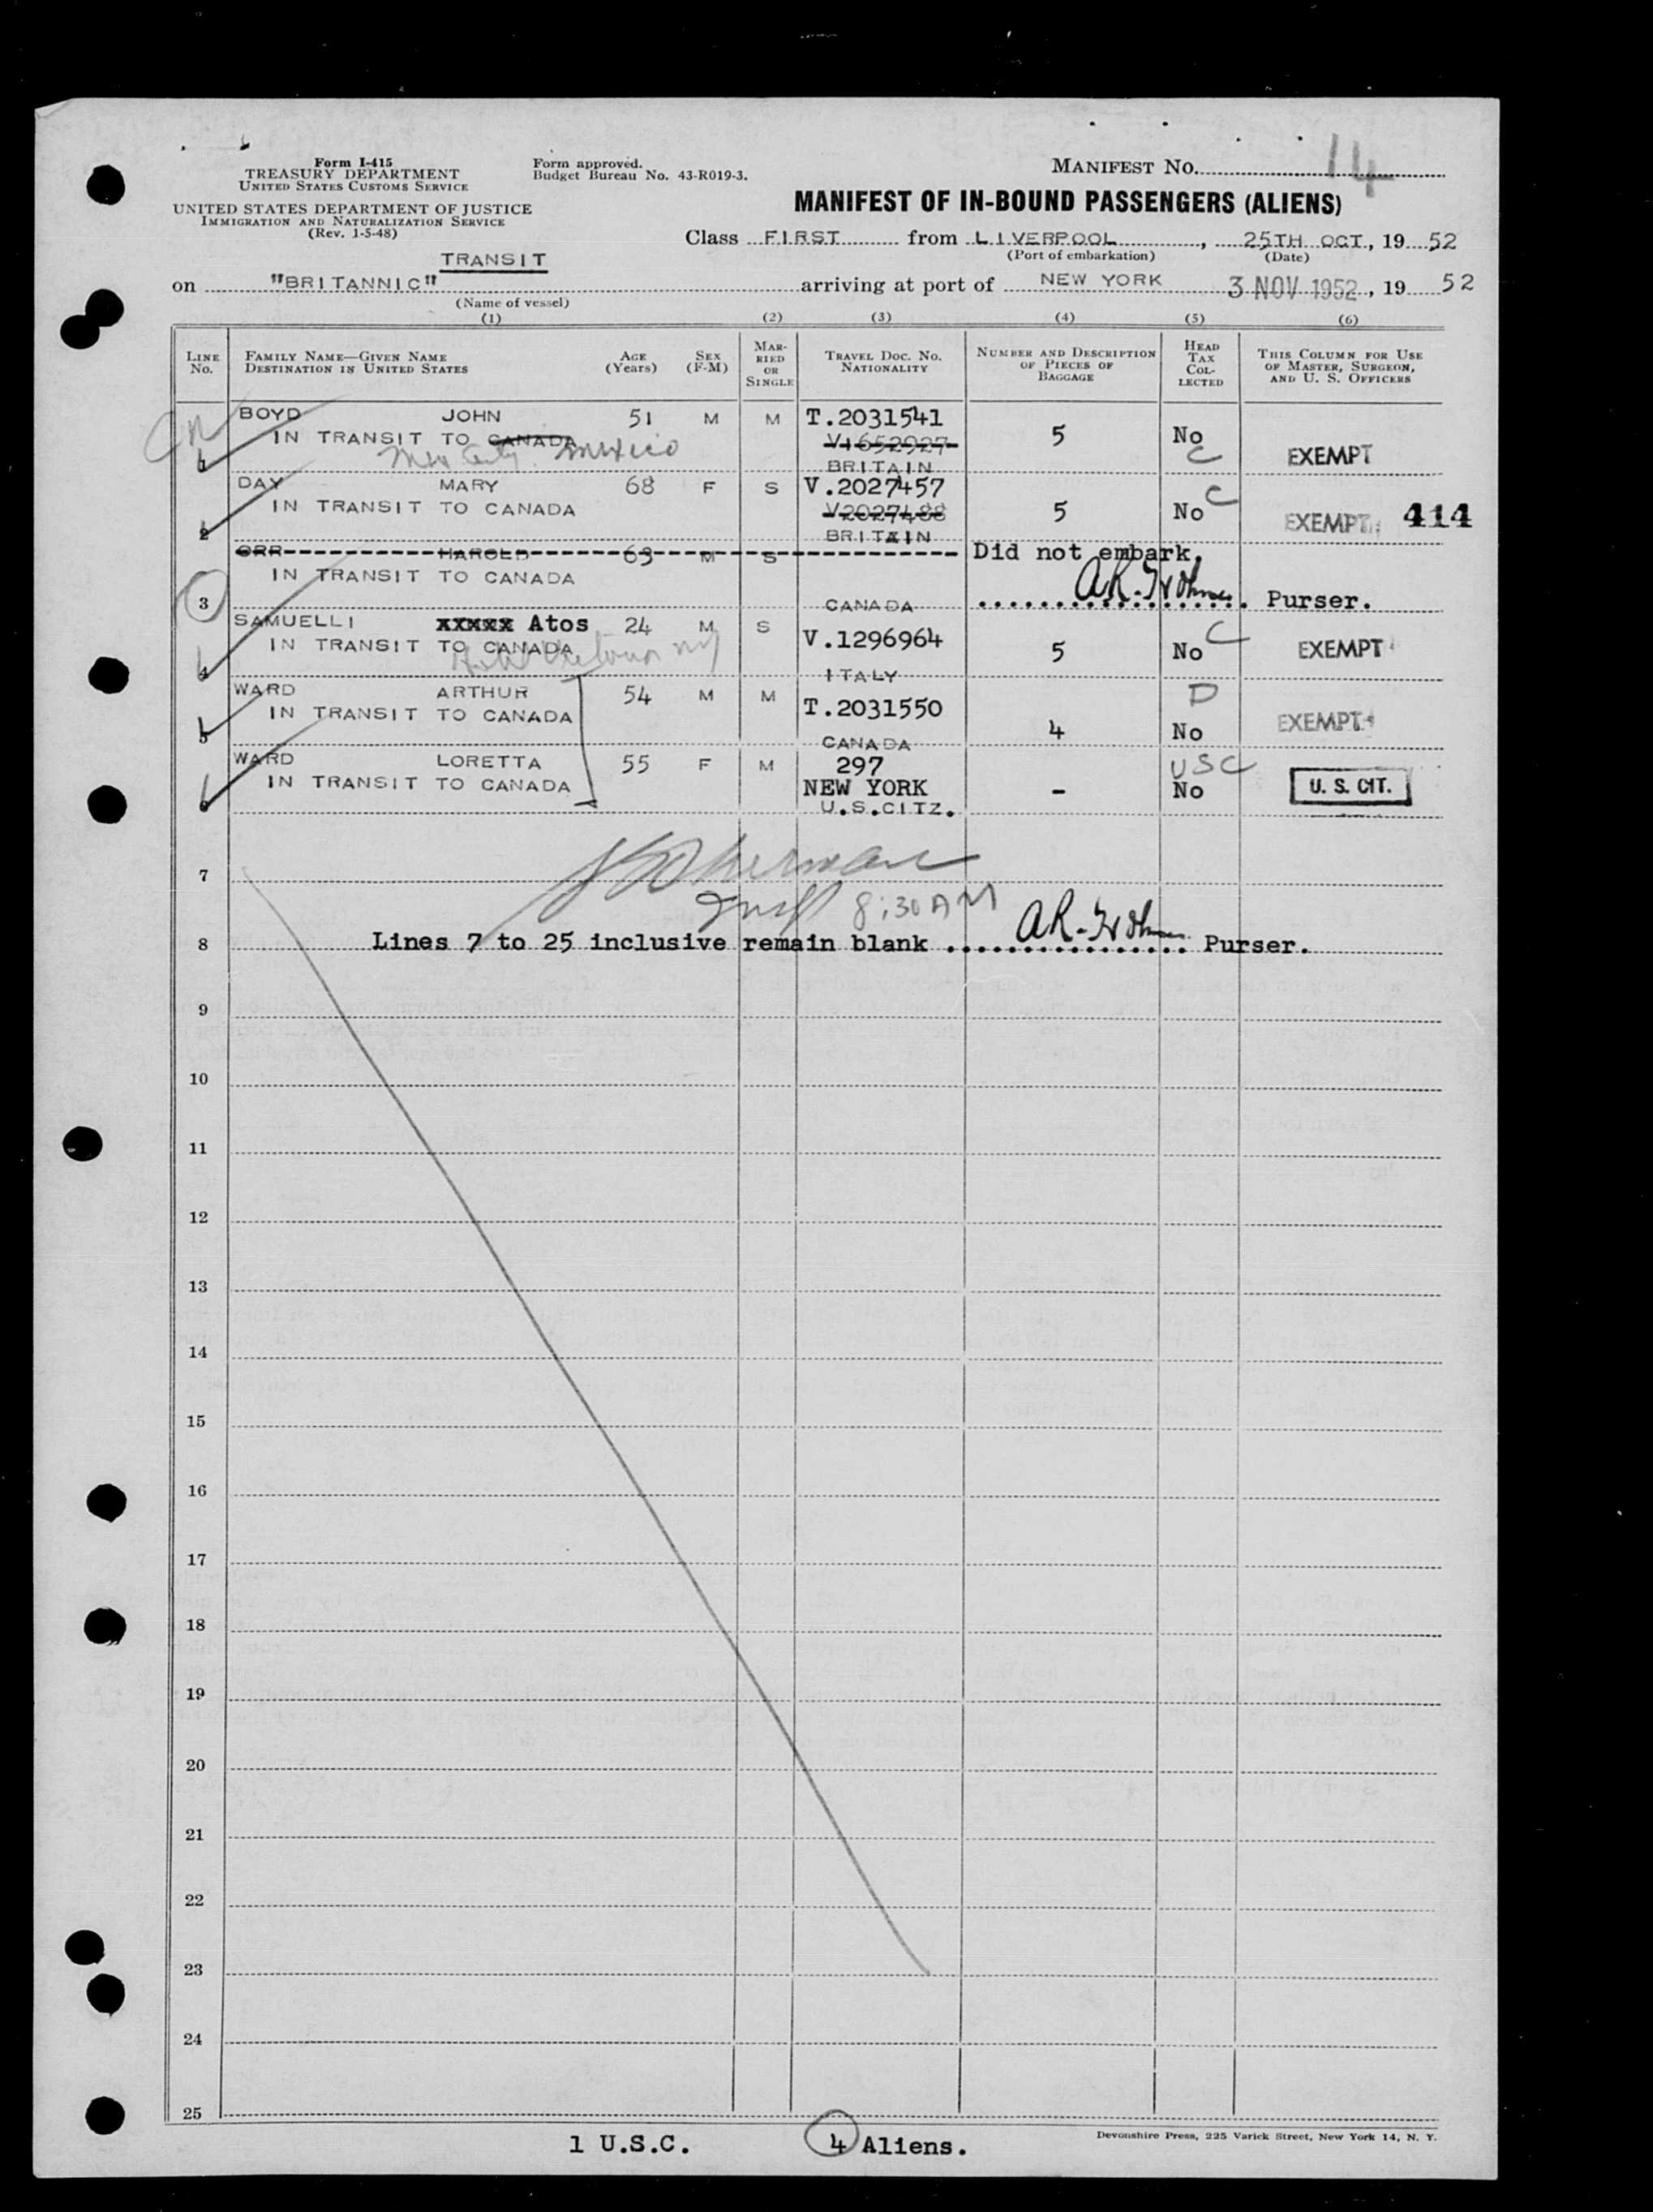 Form I-415
TREASURY DEPARTMENT
UNITED STATES CUSTOMS SERVICE
UNITED STATES DEPARTMENT OF JUSTICE
IMMIGRATION AND NATURALIZATION SERVICE
(Rev. 1-5-48)
Form approved.
Budget Bureau No. 43-R019-3.
MANIFEST No. 14
MANIFEST OF IN-BOUND PASSENGERS (ALIENS)
Class FIRST from LIVERPOOL, 25TH OCT, 19 52
(Port of embarkation) (Date)
TRANSIT
on "BRITANNIC" arriving at port of NEW YORK 3 NOV 1952, 19 52
(Name of vessel)
(1) (2) (3) (4) (5) (6)
LINE No. FAMILY NAME—GIVEN NAME DESTINATION IN UNITED STATES AGE (Years) SEX (F-M) MARRIED OR SINGLE TRAVEL DOC. NO. NATIONALITY NUMBER AND DESCRIPTION OF PIECES OF BAGGAGE HEAD TAX COLLECTED THIS COLUMN FOR USE OF MASTER, SURGEON, AND U. S. OFFICERS
1 BOYD JOHN 51 M M T.2031541 5 No C EXEMPT
IN TRANSIT TO CANADA V1652927
Mex City. Mexico BRITAIN
2 DAY MARY 68 F S V.2027457 5 No C EXEMPT 414
IN TRANSIT TO CANADA V2027488
BRITAIN
3 ORR HAROLD 63 M S Did not embark.
IN TRANSIT TO CANADA
CANADA Purser.
4 SAMUELLI XXXXX Atos 24 M S V.1296964 5 No C EXEMPT
IN TRANSIT TO CANADA
ITALY
5 WARD ARTHUR 54 M M T.2031550 4 D No EXEMPT
IN TRANSIT TO CANADA
CANADA
6 WARD LORETTA 55 F M 297 - USC No U. S. CIT.
IN TRANSIT TO CANADA NEW YORK
U.S.CITZ.
7
8:30 AM
8 Lines 7 to 25 inclusive remain blank Purser.
9
10
11
12
13
14
15
16
17
18
19
20
21
22
23
24
25
1 U.S.C. 4 Aliens.
Devonshire Press, 225 Varick Street, New York 14, N. Y.